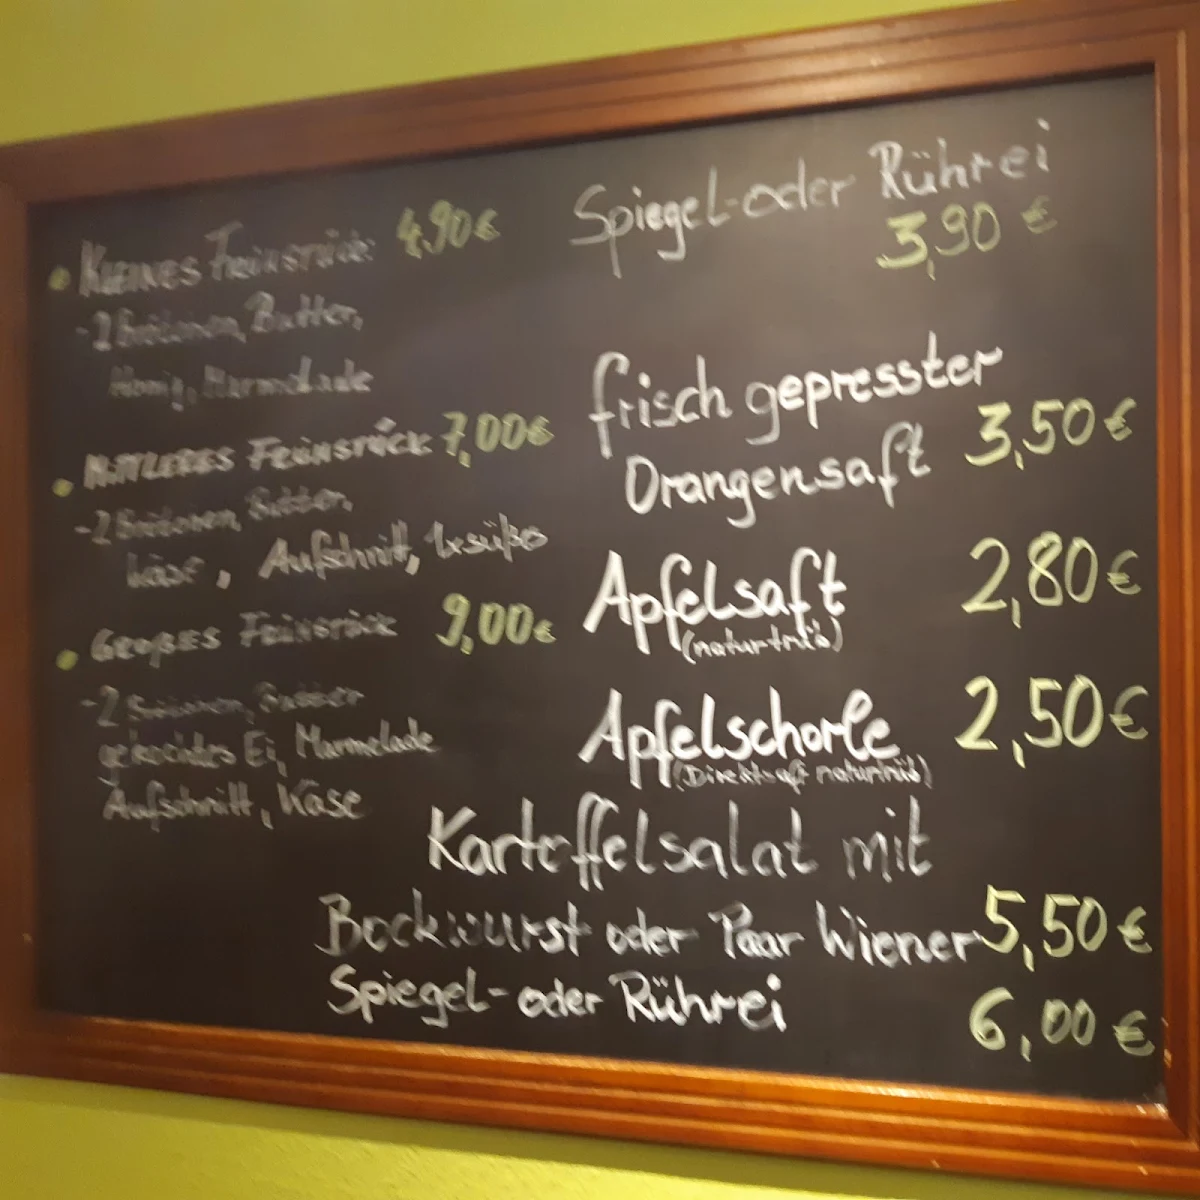 KLEINES FRÜHSTÜCK: 4,90€
-2 Brötchen, Butter,
Honig, Marmelade
MITTLERES FRÜHSTÜCK 7,00€
-2 Brötchen, Butter,
Käse, Aufschnitt, 1xsüßo
GROßES FRÜHSTÜCK 9,00€
-2 Brötchen, Butter
gekochtes Ei, Marmelade
Aufschnitt, Käse
Spiegel-oder Rührei
3,90 €
frisch gepresster
Orangensaft 3,50€
Apfelsaft 2,80€
(naturtrüb)
Apfelschorle 2,50€
(Direktsaft naturtrüb)
Kartoffelsalat mit
Bockwurst oder Paar Wiener 5,50€
Spiegel-oder Rührei 6,00€